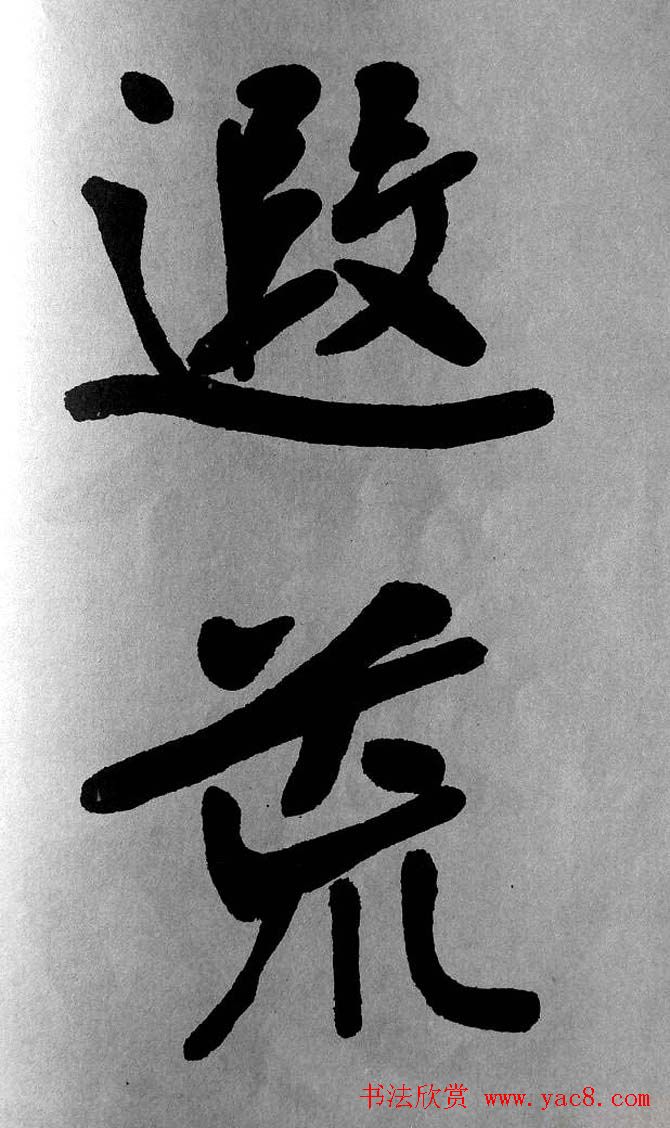 遐
荒
书法欣赏 www.yac8.com